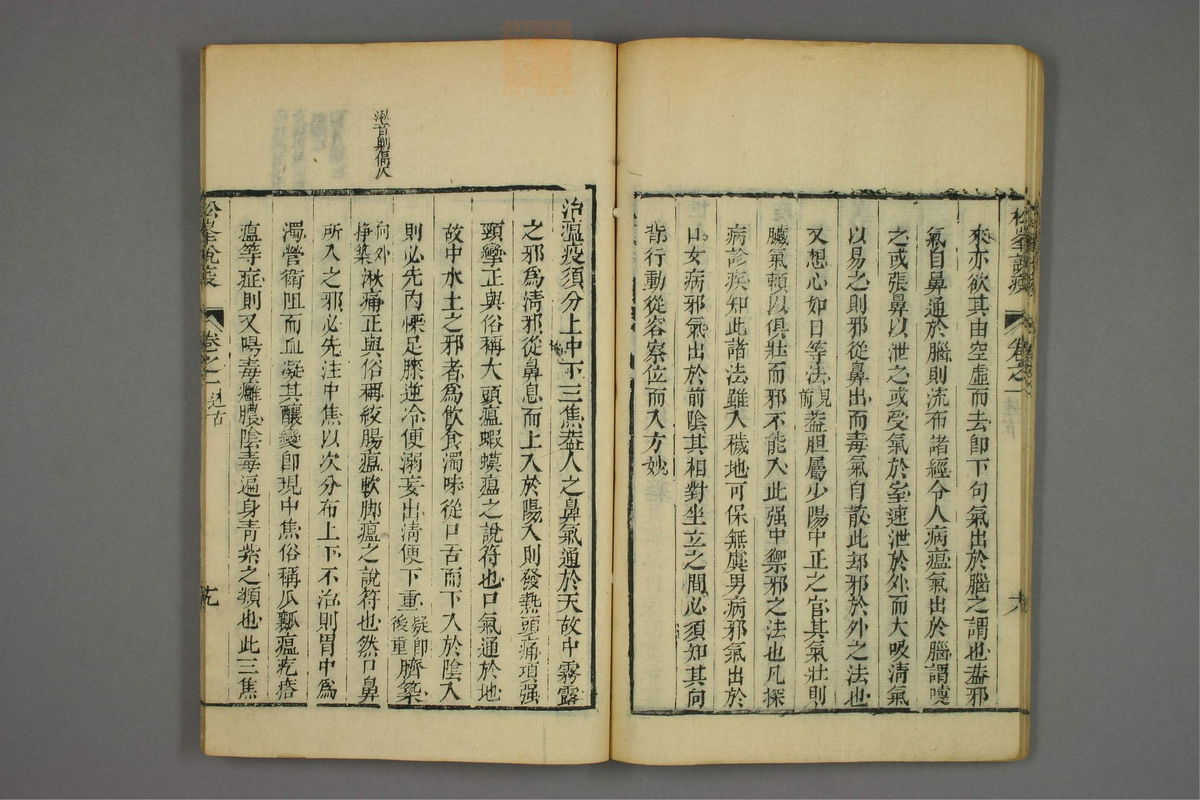 松峯說疫 卷之一 述古 十八
來亦欲其由空虛而去卽下句氣出於腦之謂也葢邪
氣自鼻通於腦則流布諸經令人病瘟氣出於腦謂嚏
之或張鼻以泄之或受氣於室速泄於外而大吸淸氣
以易之則邪從鼻出而毒氣自散此却邪於外之法也
又想心如日等法見前葢胆屬少陽中正之官其氣壯則
臟氣賴以俱壯而邪不能入此强中禦邪之法也凡探
病診疾知此諸法雖入穢地可保無虞男病邪氣出於
口女病邪氣出於前陰其相對坐立之間必須知其向
背行動從容察位而入方妙
治瘟疫須分上中下三焦葢人之鼻氣通於天故中霧露
之邪爲淸邪從鼻息而上入於陽入則發熱頭痛項强
頸攣正與俗稱大頭瘟蝦蟆瘟之說符也口氣通於地
故中水土之邪者爲飮食濁味從口舌而下入於陰入
則必先內慄足膝逆冷便溺妄出淸便下重疑卽後重臍築
向外掙築湫痛正與俗稱絞腸瘟軟脚瘟之說符也然口鼻
所入之邪必先注中焦以次分布上下不治則胃中爲
濁營衛阻而血凝其釀變卽現中焦俗稱瓜瓤瘟疙瘩
瘟等症則又陽毒癰膿陰毒遍身靑紫之類也此三焦
松峯說疫 卷之一 述古 十九